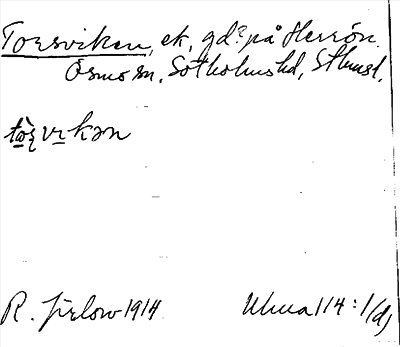 Torsviken, ek, gd? på Herrön.
Ösmo sn, Sotholms hd, Sthmsl.
R. Jirlow 1914
Ulma 114:1(d)